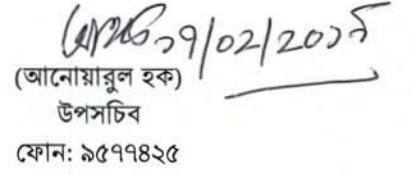 ১৭/০২/২০১৯
(আনোয়ারুল হক)
উপসচিব
ফোন: ৯৫৭৭৪২৫